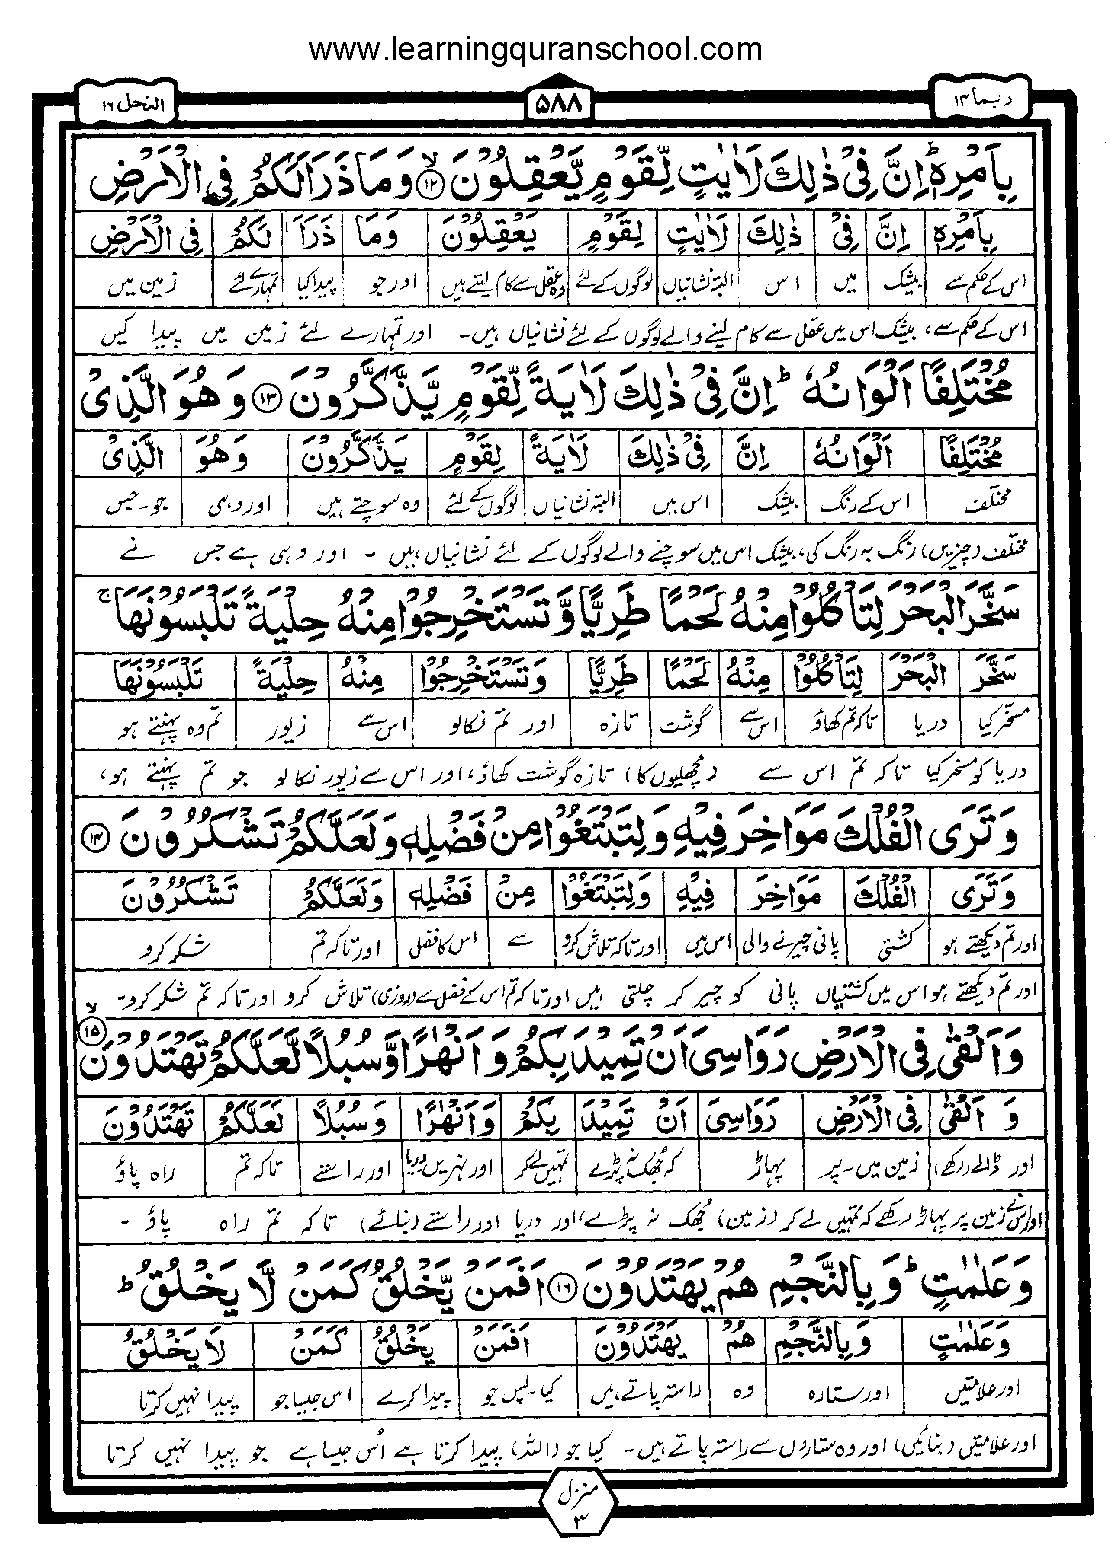 www.learningquranschool.com
ربما ۱۴
۵۸۸
النحل ۱۶
بِاَمْرِهٖؕ اِنَّ فِیْ ذٰلِكَ لَاٰیٰتٍ لِّقَوْمٍ یَّعْقِلُوْنَۙ ۱۲ وَمَا ذَرَاَ لَكُمْ فِی الْاَرْضِ
بِاَمْرِهٖ اِنَّ فِیْ ذٰلِكَ لَاٰیٰتٍ لِقَوْمٍ یَعْقِلُوْنَ وَمَا ذَرَاَ لَكُمْ فِی الْاَرْضِ
اس کے حکم سے بیشک میں اس البتہ نشانیاں لوگوں کے لئے وہ عقل سے کام لیتے ہیں اور جو پیدا کیا تمہارے لئے زمین میں
اس کے حکم سے، بیشک اس میں عقل سے کام لینے والے لوگوں کے لئے نشانیاں ہیں۔ اور تمہارے لئے زمین میں پیدا کیں
مُخْتَلِفًا اَلْوَانُهٗؕ اِنَّ فِیْ ذٰلِكَ لَاٰیَةً لِّقَوْمٍ یَّذَّكَّرُوْنَ ۱۳ وَهُوَ الَّذِیْ
مُخْتَلِفًا اَلْوَانُهٗ اِنَّ فِیْ ذٰلِكَ لَاٰیَةً لِقَوْمٍ یَذَّكَّرُوْنَ وَهُوَ الَّذِیْ
مختلف اس کے رنگ بیشک اس میں البتہ نشانیاں لوگوں کے لئے وہ سوچتے ہیں اور وہی جو۔جس
مختلف (چیزیں) رنگ بہ رنگ کی، بیشک اس میں سوچنے والے لوگوں کے لئے نشانیاں ہیں ۔ اور وہی ہے جس نے
سَخَّرَ الْبَحْرَ لِتَاْكُلُوْا مِنْهُ لَحْمًا طَرِیًّا وَّتَسْتَخْرِجُوْا مِنْهُ حِلْیَةً تَلْبَسُوْنَهَاۚ
سَخَّرَ الْبَحْرَ لِتَاْكُلُوْا مِنْهُ لَحْمًا طَرِیًّا وَتَسْتَخْرِجُوْا مِنْهُ حِلْیَةً تَلْبَسُوْنَهَا
مسخر کیا دریا تاکہ تم کھاؤ اس سے گوشت تازہ اور تم نکالو اس سے زیور تم وہ پہنتے ہو
دریا کو مسخر کیا تاکہ تم اس سے (مچھلیوں کا) تازہ گوشت کھاؤ، اور اس سے زیور نکالو جو تم پہنتے ہو،
وَتَرَی الْفُلْكَ مَوَاخِرَ فِیْهِ وَلِتَبْتَغُوْا مِنْ فَضْلِهٖ وَلَعَلَّكُمْ تَشْكُرُوْنَ ۱۴
وَتَرَی الْفُلْكَ مَوَاخِرَ فِیْهِ وَلِتَبْتَغُوْا مِنْ فَضْلِهٖ وَلَعَلَّكُمْ تَشْكُرُوْنَ
اور تم دیکھتے ہو کشتی پانی چیرنے والی اس میں اور تاکہ تلاش کرو سے اس کا فضل اور تاکہ تم شکر کرو
اور تم دیکھتے ہو اس میں کشتیاں پانی کو چیر کر چلتی ہیں اور تاکہ تم اس کے فضل سے (روزی) تلاش کرو اور تاکہ تم شکر کرو۔
وَاَلْقٰی فِی الْاَرْضِ رَوَاسِیَ اَنْ تَمِیْدَ بِكُمْ وَاَنْهٰرًا وَّسُبُلًا لَّعَلَّكُمْ تَهْتَدُوْنَۙ ۱۵
وَ اَلْقٰی فِی الْاَرْضِ رَوَاسِیَ اَنْ تَمِیْدَ بِكُمْ وَاَنْهٰرًا وَسُبُلًا لَعَلَّكُمْ تَهْتَدُوْنَ
اور ڈالے (رکھے) زمین میں۔پر پہاڑ کہ جھک نہ پڑے تمہیں لے کر اور نہریں دریا اور راستے تاکہ تم راہ پاؤ
اور اس نے زمین پر پہاڑ رکھے کہ تمہیں لے کر (زمین) جھک نہ پڑے، اور دریا اور راستے (بنائے) تاکہ تم راہ پاؤ ۔
وَعَلٰمٰتٍؕ وَبِالنَّجْمِ هُمْ یَهْتَدُوْنَ ۱۶ اَفَمَنْ یَّخْلُقُ كَمَنْ لَّا یَخْلُقُؕ
وَعَلٰمٰتٍ وَبِالنَّجْمِ هُمْ یَهْتَدُوْنَ اَفَمَنْ یَخْلُقُ كَمَنْ لَا یَخْلُقُ
اور علامتیں اور ستارہ وہ راستہ پاتے ہیں کیا۔پس جو پیدا کرے اس جیسا جو پیدا نہیں کرتا
اور علامتیں (بنائیں) اور وہ ستاروں سے راستہ پاتے ہیں۔ کیا جو (اللہ) پیدا کرتا ہے اُس جیسا ہے جو پیدا نہیں کرتا
منزل ۳